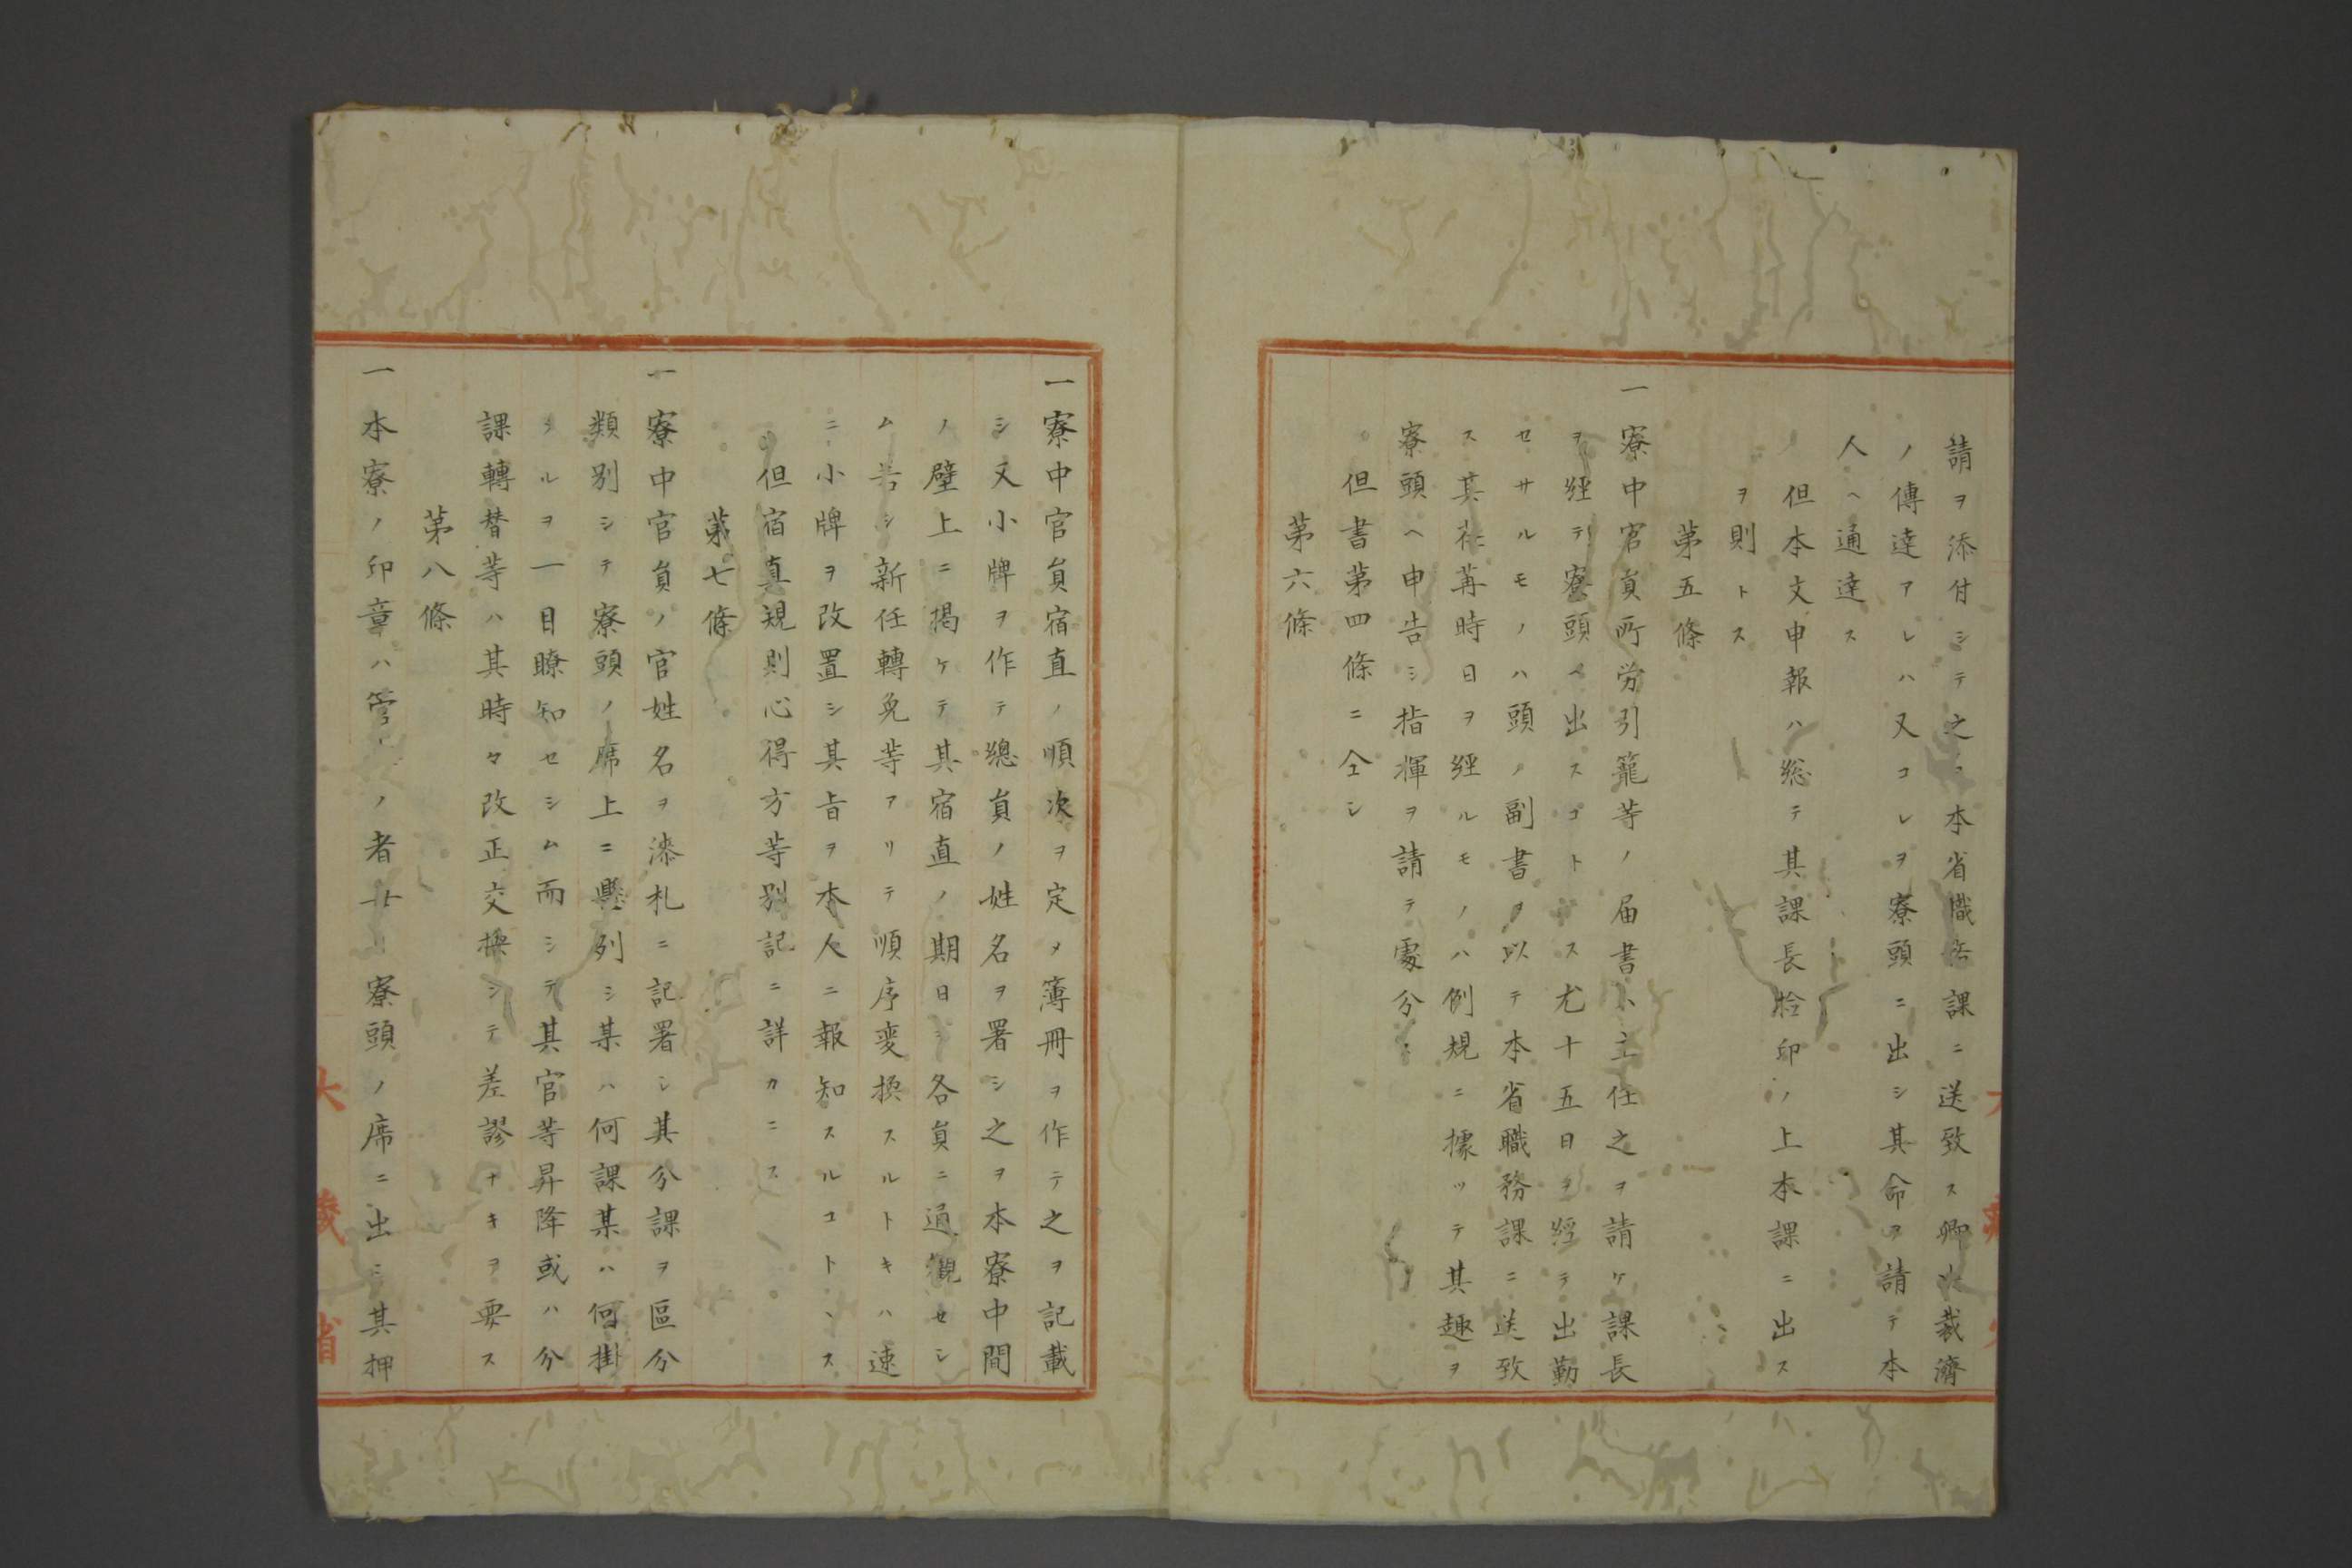 請ヲ添付シテ之ヲ本省職務課ニ送致ス卿ノ裁濟
ノ傳達アレハ又コレヲ寮頭ニ出シ其命ヲ請テ本
人ヘ通達ス
但本文申報ハ総テ其課長捡印ノ上本課ニ出ス
ヲ則トス
第五條
一寮中官員所労引籠等ノ届書ハ主任之ヲ請ケ課長
ヲ經テ寮頭ヘ出スコトトス尤十五日ヲ經テ出勤
セサルモノハ頭ノ副書ヲ以テ本省職務課ニ送致
ス其在苒時日ヲ經ルモノハ例規ニ據ッテ其趣ヲ
寮頭ヘ申告シ指揮ヲ請テ處分
但書第四條ニ仝シ
第六條
一寮中官員宿直ノ順次ヲ定メ簿冊ヲ作テ之ヲ記載
シ又小牌ヲ作テ總員ノ姓名ヲ署シ之ヲ本寮中間
ノ壁上ニ掲ケテ其宿直ノ期日ヲ各員ニ通観セシ
ム若シ新任轉免等アリテ順序変換スルトキハ速
ニ小牌ヲ改置シ其旨ヲ本人ニ報知スルコトヽス
但宿直規則心得方等別記ニ詳カニス
第七條
一寮中官員ノ官姓名ヲ漆札ニ記署シ其分課ヲ區分
類別シテ寮頭ノ席上ニ懸列シ某ハ何課某ハ何掛
タルヲ一目瞭知セシム而シテ其官等昇降或ハ分
課轉替等ハ其時々改正交換シテ差謬ナキヲ要ス
第八條
一本寮ノ印章ハ管ノ者寮頭ノ席ニ出シ其押
大藏省